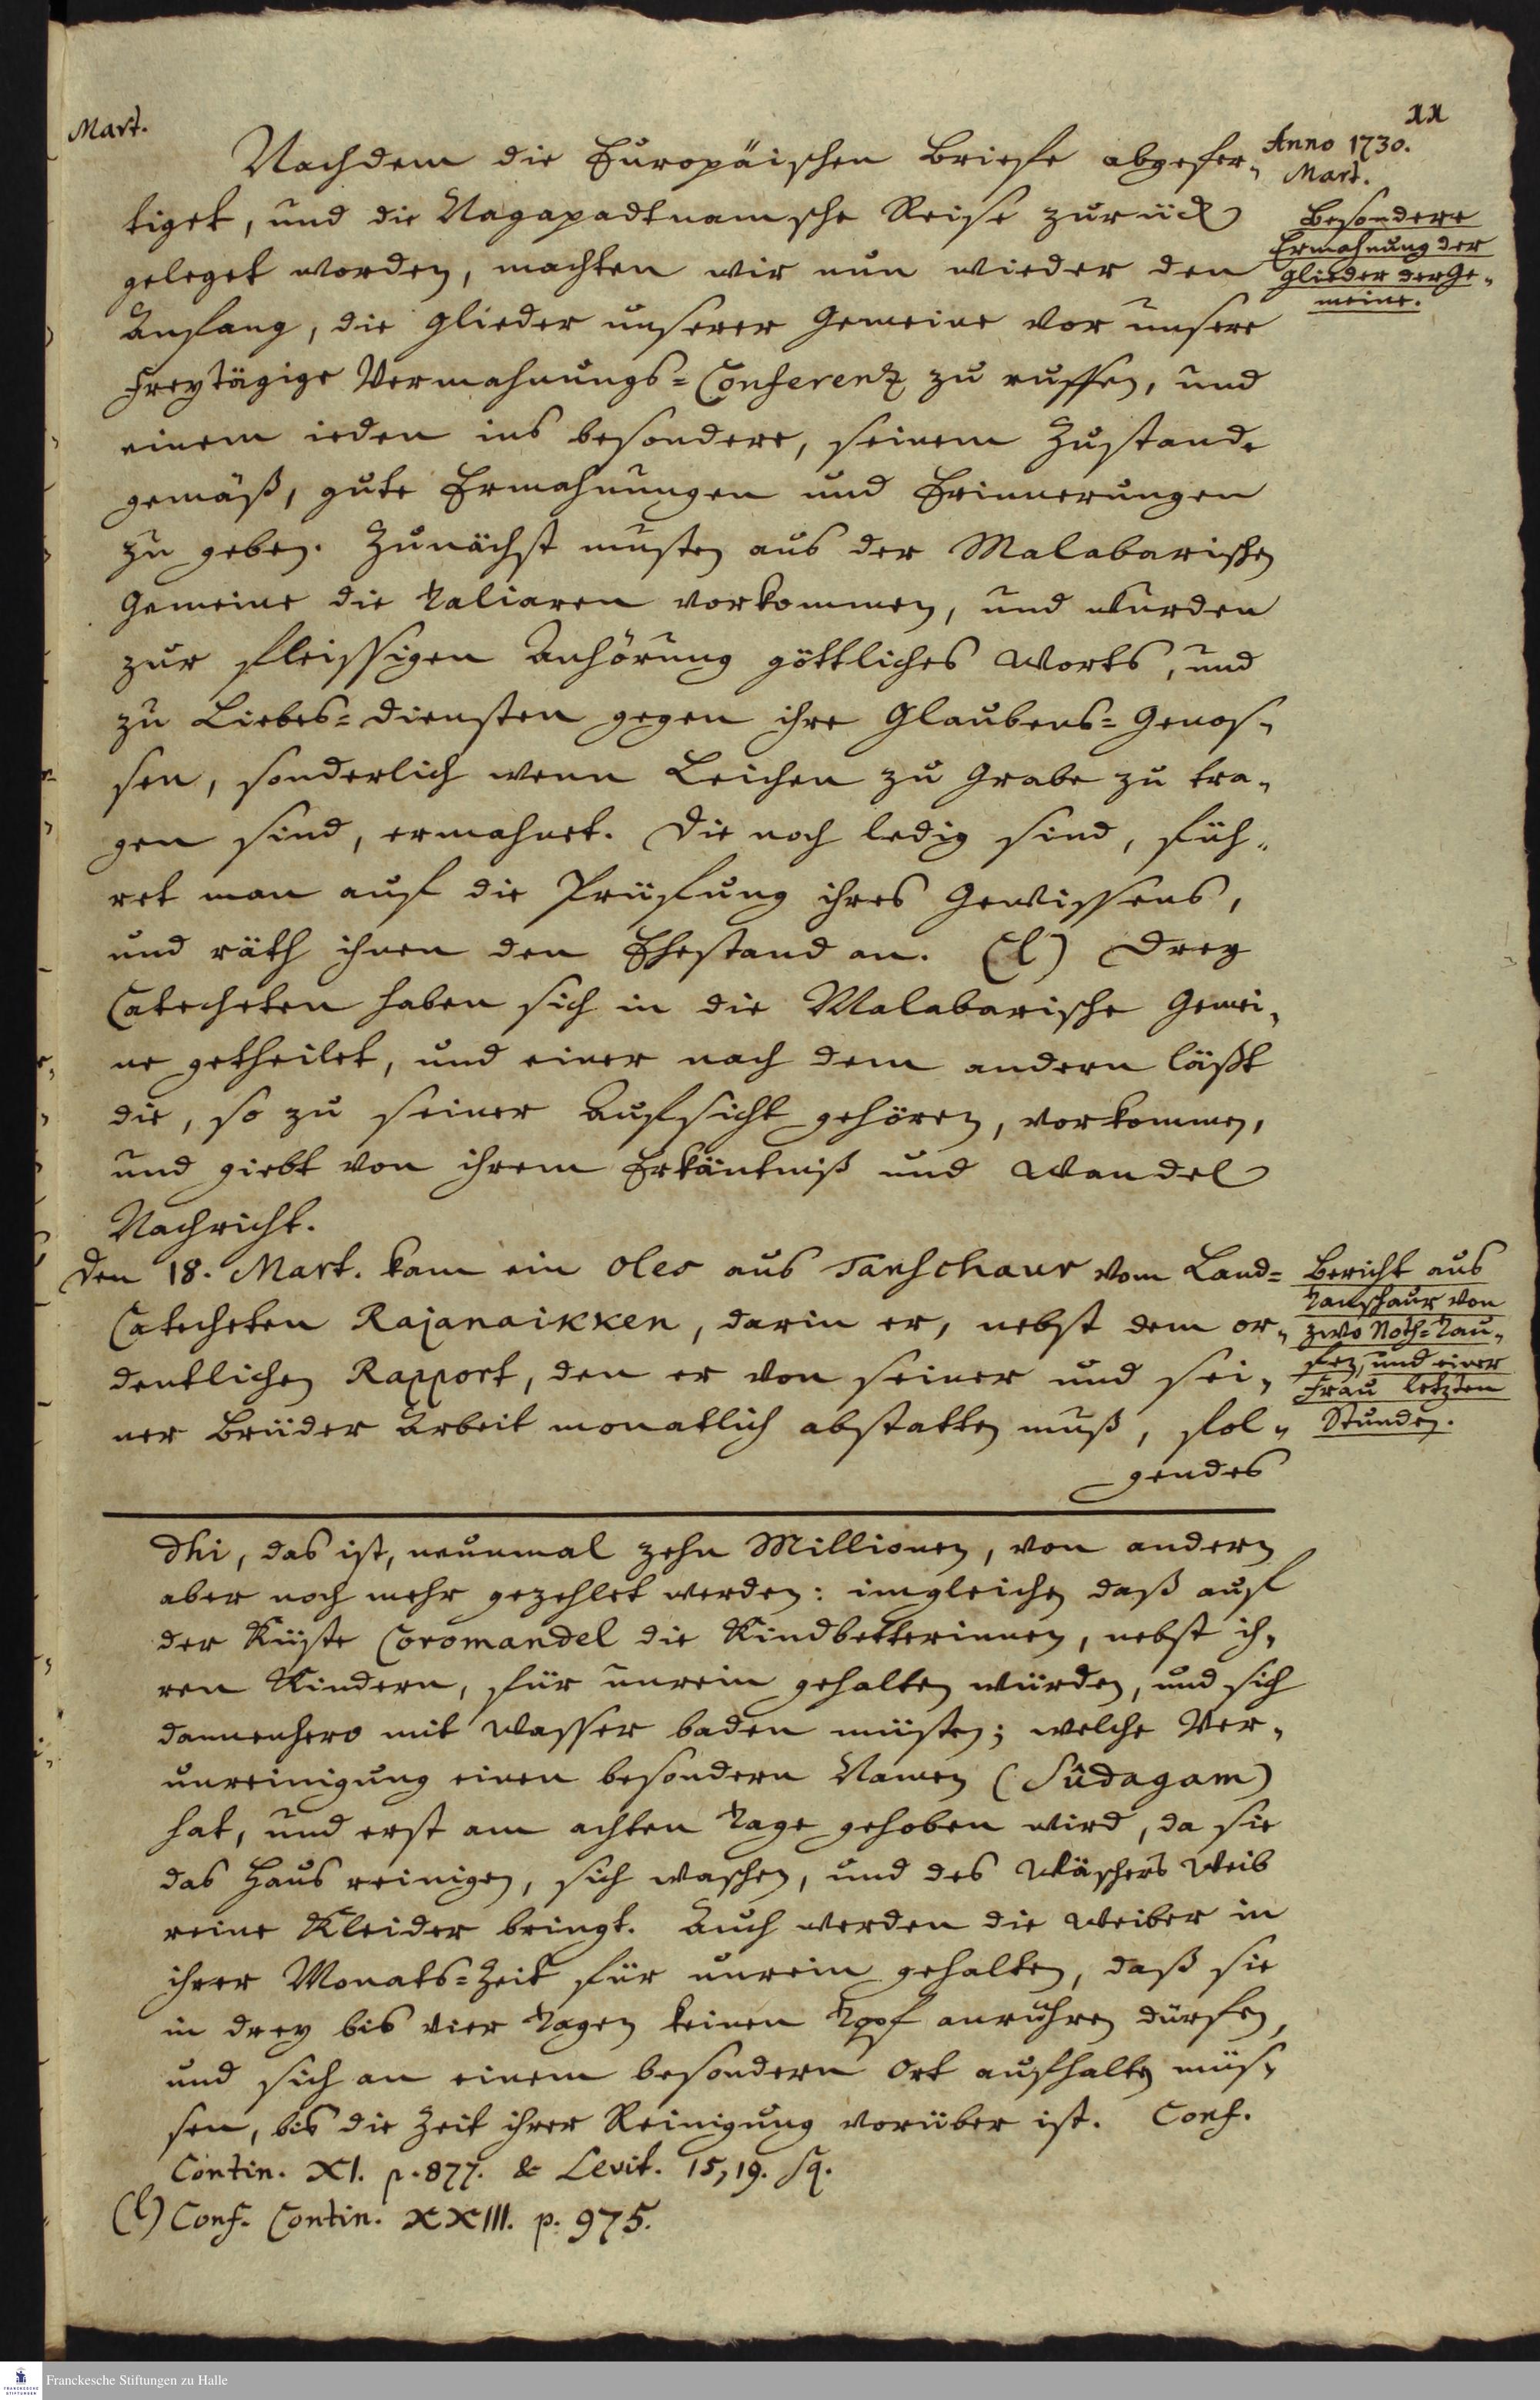 Mart.
11
Anno 1730.
Mart.
Nachdem die Europäischen Briefe abgefer-
tiget, und die Nagapadtnamsche Reise zurück
geleget worden, machten wir nun wieder den
Anfang, die Glieder unserer Gemeine vor unsere
Freytägige Vermahnungs-Conferentz zu ruffen, und
einem ieden ins besondere, seinem Zustande
gemäß, gute Ermahnungen und Erinnerungen
zu geben. Zunächst musten aus der Malabarischen
Gemeine die Taliaren vorkommen, und wurden
zur fleissigen Anhörung göttliches Worts, und
zu Liebes-Diensten gegen ihre Glaubens-Genos-
sen, sonderlich wenn Leichen zu Grabe zu tra-
gen sind, ermahnet. Die noch ledig sind, füh-
ret man auf die Prüfung ihres Gewissens,
und räth ihnen den Ehestand an. (l) Drey
Catecheten haben sich in die Malabarische Gemei-
ne getheilet, und einer nach dem andern läßt
die, so zu seiner Aufsicht gehören, vorkommen,
und giebt von ihrem Erkäntniß und Wandel
Nachricht.
Besondere
Ermahnung der
Glieder der Ge-
meine.
Den 18. Mart. kam ein Oles aus Tanschaur vom Land-
Catecheten Rajanaikken, darin er, nebst dem or-
dentlichen Rapport, den er von seiner und sei-
ner Brüder Arbeit monatlich abstatten muß, fol-
gendes
Bericht aus
Tanschaur von
zwo Noth-Tau-
fen, und einer
Frau letzten
Stunden.
dhi, das ist, neunmal zehn Millionen, von andern
aber noch mehr gezehlet werden: imgleichen daß auf
der Küste Coromandel die Kindbetterinnen, nebst ih-
ren Kindern, für unrein gehalten würden, und sich
dannenhero mit Wasser baden müsten; welche Ver-
unreinigung einen besondern Namen (Sûdagam)
hat, und erst am achten Tage gehoben wird, da sie
das Haus reinigen, sich waschen, und des Wäschers Weib
reine Kleider bringt. Auch werden die Weiber in
ihrer Monats-Zeit für unrein gehalten, daß sie
in drey bis vier Tagen keinen Topf anrühren dürfen,
und sich an einem besondern Ort aufhalten müs-
sen, bis die Zeit ihrer Reinigung vorüber ist. Conf.
Contin. XI. p. 877. & Levit. 15, 19. sq.
(l) Conf. Contin. XXIII. p. 975.
Franckesche Stiftungen zu Halle